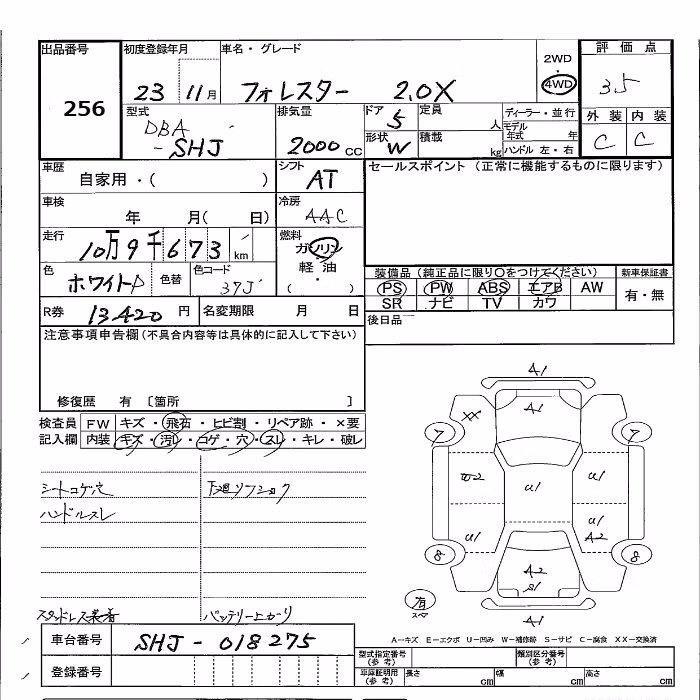 出品番号 初度登録年月 車名・グレード 2WD 評価点
256 23 11月 フォレスター 2.0X 4WD 3.5
型式 排気量 ドア 定員 ディーラー・並行 外装 内装
DBA
-SHJ 2000cc 5 人 モデル年式 年 C C
形状 W 積載 kg ハンドル 左・右
車歴 シフト セールスポイント(正常に機能するものに限ります)
自家用・( ) AT
車検 冷房
年 月( 日) AAC
走行 燃料
10万9千673km ガソリン
軽油
( ・ )
色 ホワイトP 色替 色コード 37J
装備品(純正品に限り〇をつけてください) 新車保証書
PS PW ABS エアB AW 有・無
SR ナビ TV カワ
R券 13420円 名変期限 月 日 後日品
注意事項申告欄(不具合内容等は具体的に記入して下さい)
修復歴 有 〔箇所 〕
検査員 FW キズ・飛石・ヒビ割・リペア跡・×要
記入欄 内装 キズ・汚レ・コゲ・穴・スレ・キレ・破レ
シートコゲ穴 下廻リ
ハンドルスレ
スタッドレス装着 バッテリー上がり
A1
A1
XX
7 7
U2 U1 U1
U1 U1
A2
8 8
A2
S1
有
スペア
A1
A-キズ E-エクボ U-凹み W-補修跡 S-サビ C-腐食 XX-交換済
車台番号 SHJ-018275
登録番号
型式指定番号(参考) 類別区分番号(参考)
車庫証明用(参考) 長さ cm 幅 cm 高さ cm